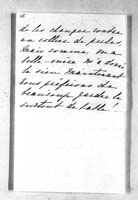 de les changer contre
un collier de perles,
mais comme ma
belle mère m'a donné
le sien maintenant
nous préférons de
beaucoup garder le
surtout de table!